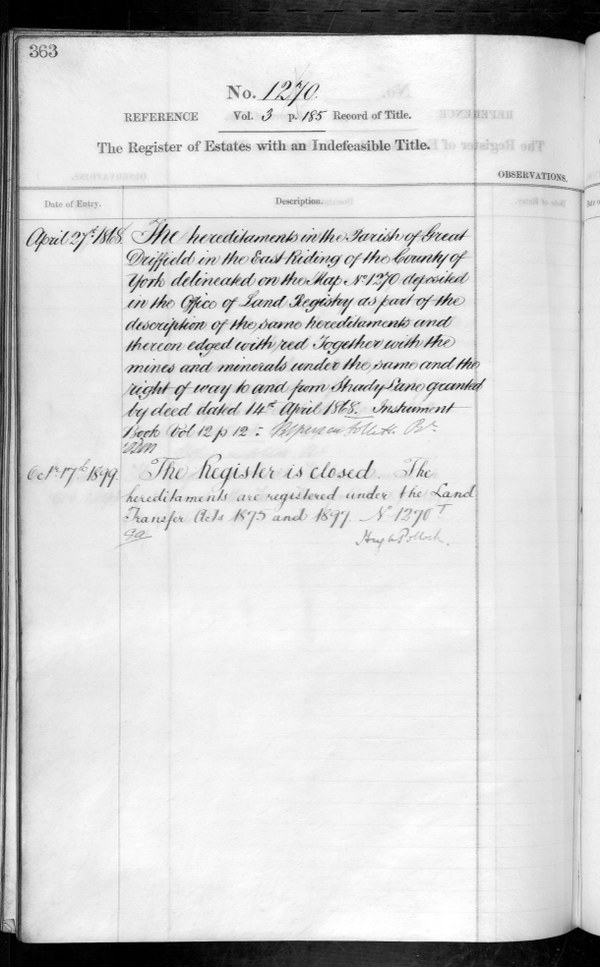 363
No. 1270.
REFERENCE Vol. 3 p. 185 Record of Title.
The Register of Estates with an Indefeasible Title.
OBSERVATIONS.
Date of Entry. Description.
April 27th 1868. The hereditaments in the Parish of Great
Driffield in the East Riding of the County of
York delineated on the Map No 1270 deposited
in the Office of Land Registry as part of the
description of the same hereditaments and
thereon edged with red Together with the
mines and minerals under the same and the
right of way to and from Shady Lane granted
by deed dated 14th April 1868. Instrument
Book Vol 12 p 12 : Follett
Oct 17th 1899. The Register is closed. The
hereditaments are registered under the Land
Transfer Acts 1875 and 1897. No 1270 T
Hugh Pollock.